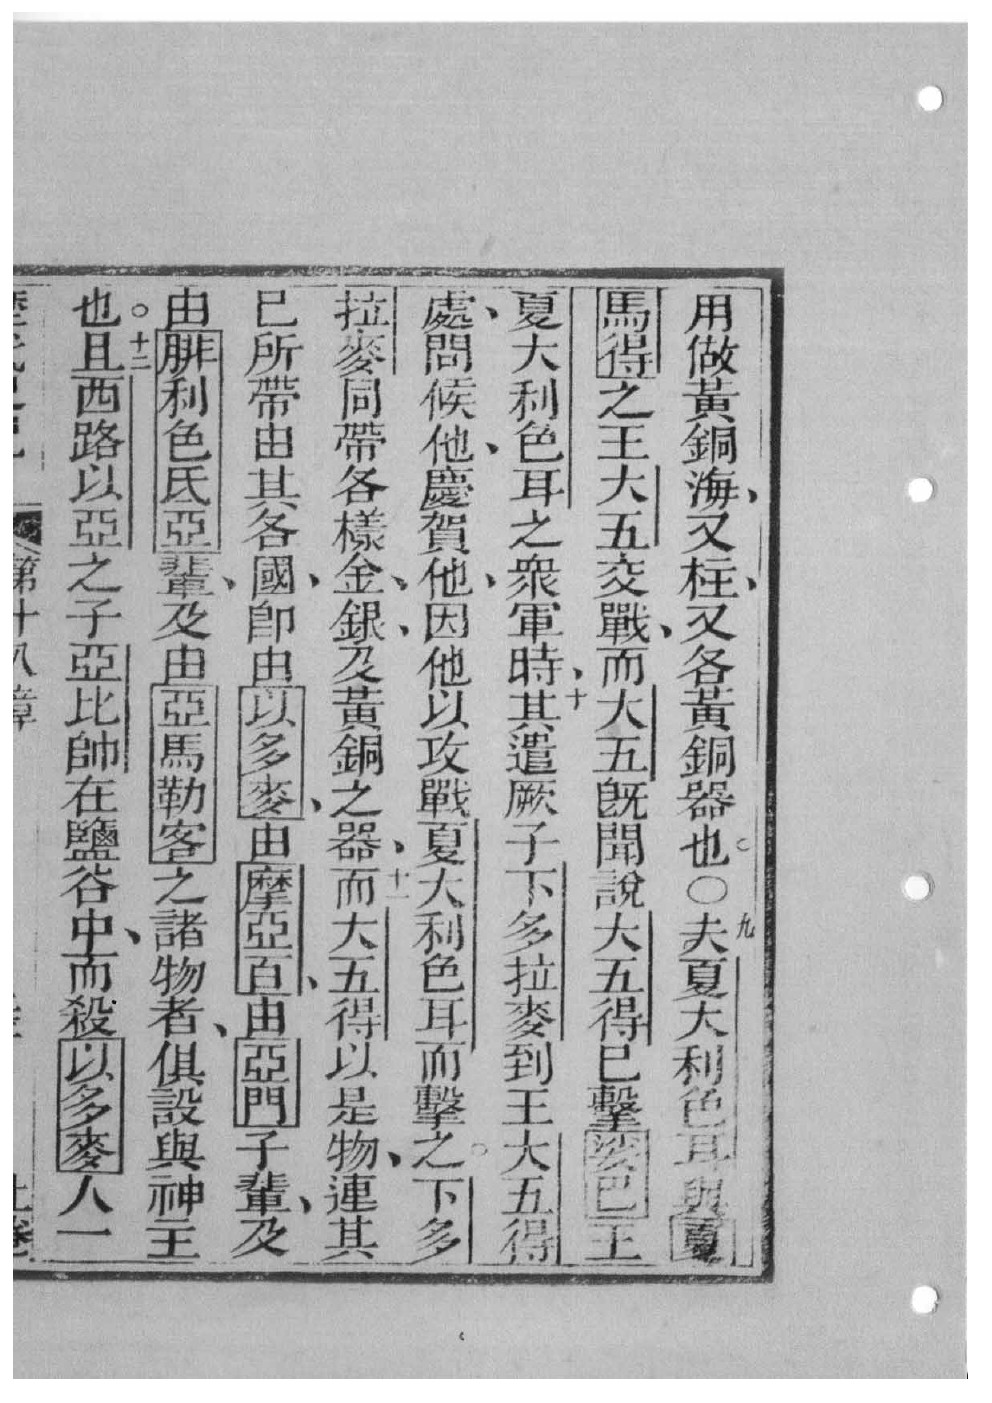 用做黃銅海、又柱、又各黃銅器也。○九夫夏大利色耳與夏
馬得之王大五交戰、而大五旣聞說大五得已擊娑巴王
夏大利色耳之衆軍時、十其遣厥子下多拉麥到王大五得
處、問候他、慶賀他、因他以攻戰夏大利色耳而擊之。下多
拉麥同帶各樣金、銀、及黃銅之器、十一而大五得以是物、連其
已所帶由其各國、卽由以多麥、由摩亞百、由亞門子輩、及
由腓利色氏亞輩、及由亞馬勒客之諸物者、俱設與神主
也。十二且西路以亞之子亞比帥在鹽谷中、而殺以多麥人一
第十八章